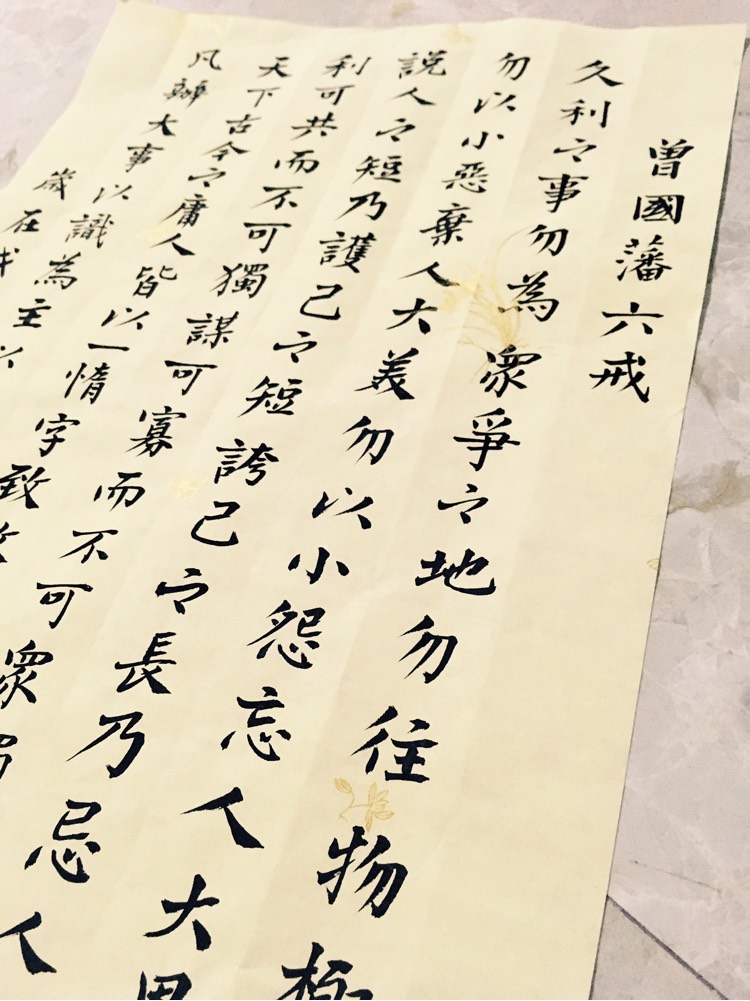 曾國藩六戒
久利之事勿為眾爭之地勿往物極
勿以小惡棄人大美勿以小怨忘人大恩
說人之短乃護己之短誇己之長乃忌人
利可共而不可獨謀可寡而不可眾
天下古今之庸人皆以一惰字致
凡辦大事以識為主
歲在